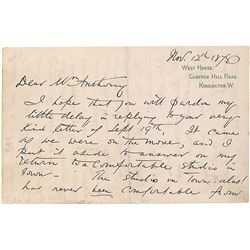 Nov. 12th 1878
WEST HOUSE,
CAMPDEN HILL ROAD,
KENSINGTON. W.
Dear Mr Anthony
I hope that you will pardon my
little delay in replying to your very
kind letter of Sept 19th. It came
as we were on the move, and I
put it aside to answer on my
return to a comfortable studio in
town – The studio in town, alas!
has never been comfortable from